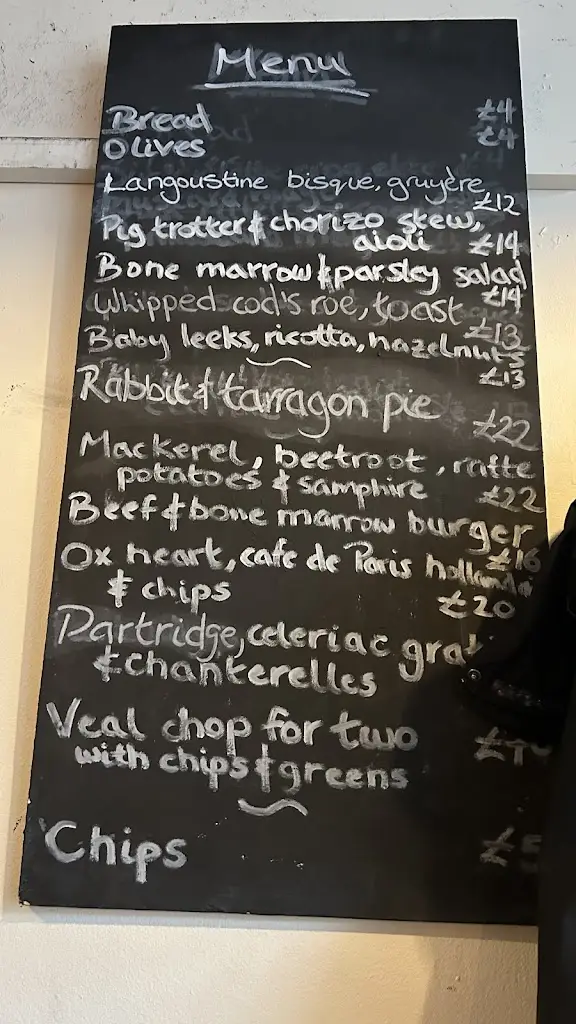 Menu
Bread £4
Olives £4
Langoustine bisque, gruyère
£12
Pig trotter & chorizo stew,
aioli £14
Bone marrow & parsley salad
£14
Whipped cod's roe, toast £13
Baby leeks, ricotta, hazelnuts
£13
Rabbit & tarragon pie
£22
Mackerel, beetroot, ratte
potatoes & samphire £22
Beef & bone marrow burger
£16
Ox heart, cafe de Paris
& chips £20
Partridge, celeriac
& chanterelles
Veal chop for two
with chips & greens
Chips £5